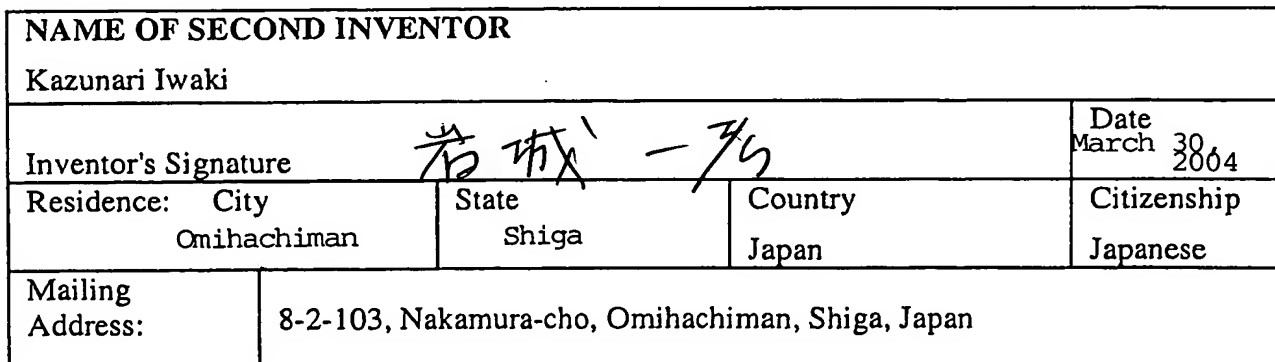 NAME OF SECOND INVENTOR
Kazunari Iwaki
Inventor's Signature 岩城 一
Date
March 30,
2004
Residence: City
Omihachiman
State
Shiga
Country
Japan
Citizenship
Japanese
Mailing
Address:
8-2-103, Nakamura-cho, Omihachiman, Shiga, Japan